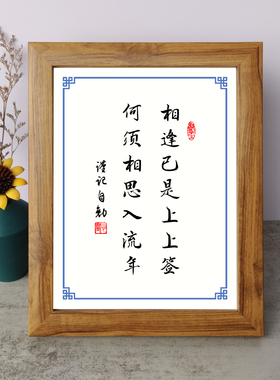 相逢已是上上签
何须相思入流年
谨记自勉